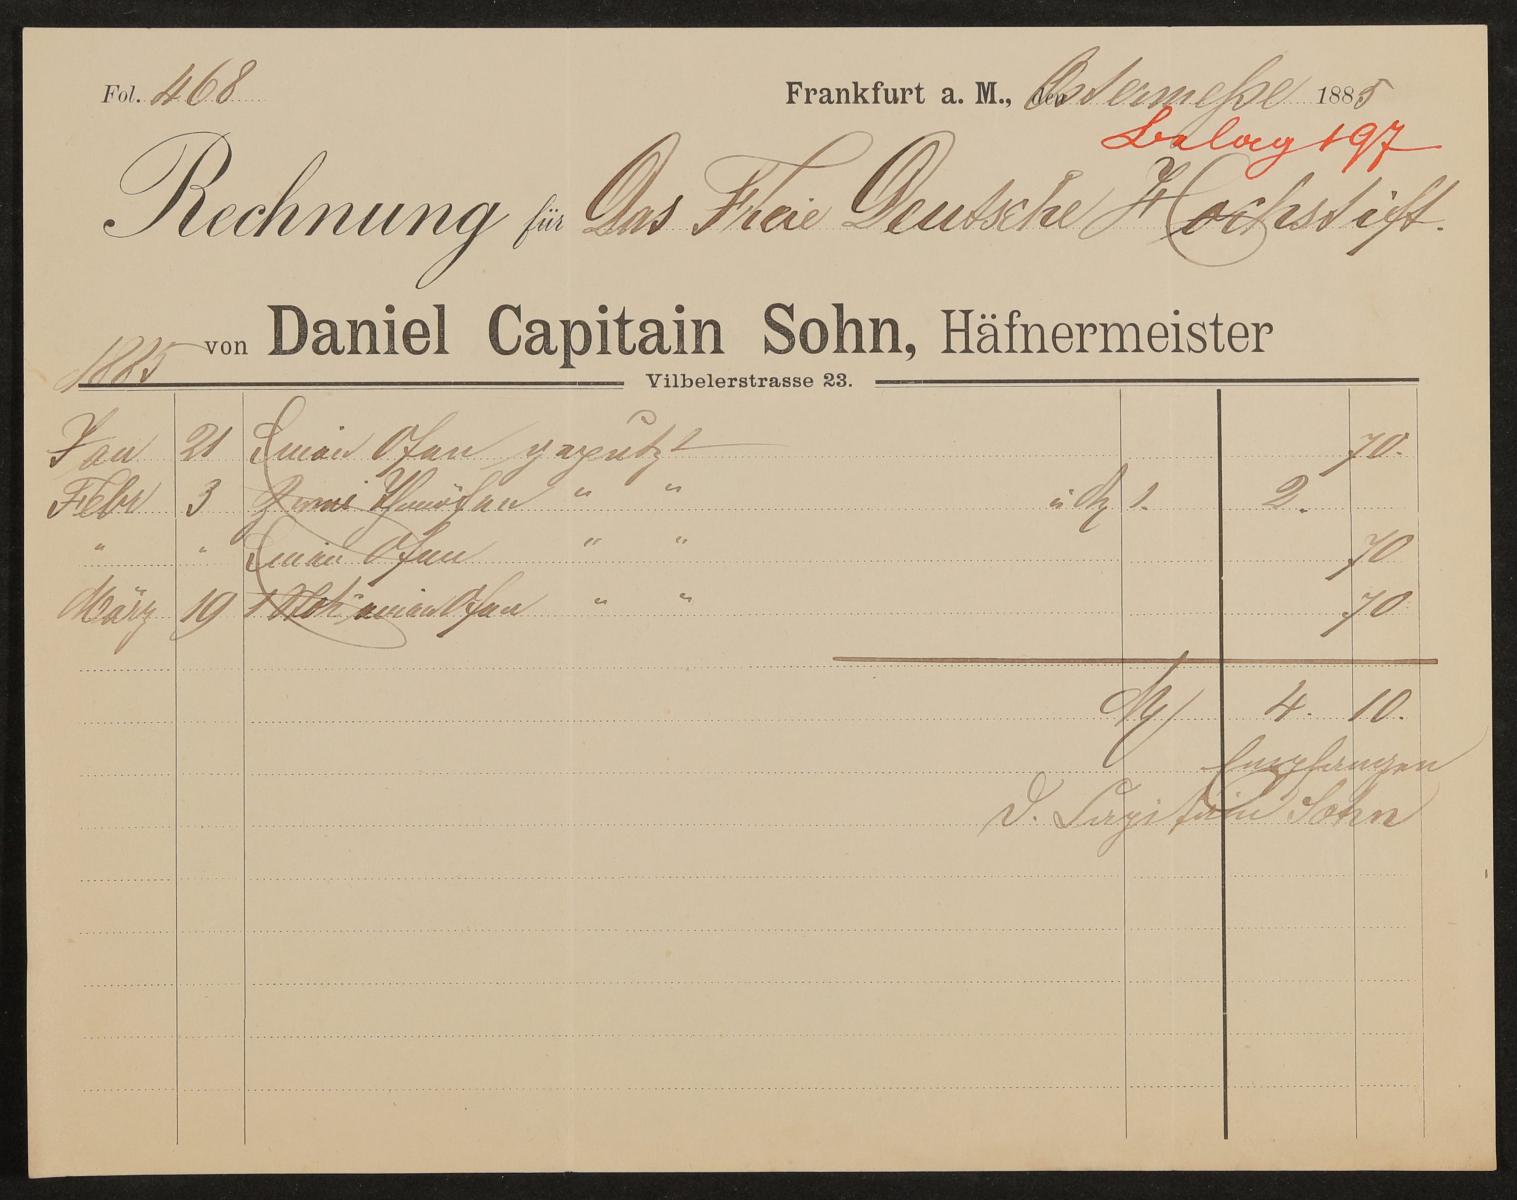 Fol. 468
Frankfurt a. M., den Ostermeße 1885
Beleg 197
Rechnung für Das Freie Deutsche Hochstift.
von Daniel Capitain Sohn, Häfnermeister
1885
Vilbelerstrasse 23.
Jan 21 Einen Ofen geputzt 70.
Febr 3 Zwei " " à M 1. 2.
" " Einen Ofen " " 70
März 19 einen Ofen " " 70
M 4. 10.
Empfangen
D. Capitain Sohn